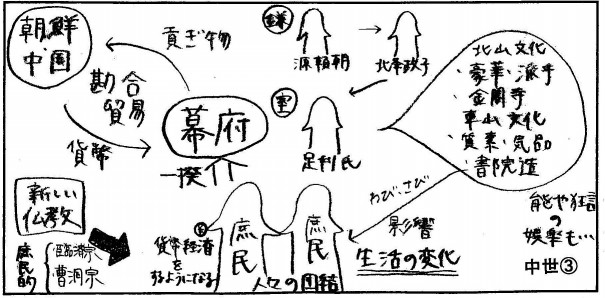 朝鮮
中国
貢ぎ物
勘合
貿易
貨幣
幕府
一揆
鎌
源頼朝
北条政子
室
足利氏
北山文化
・豪華・派手
・金閣寺
東山文化
・質素・気品
・書院造
わび、さび
影響
生活の変化
能や狂言
の
娯楽も…
中世③
新しい
仏教
庶民的
臨済宗
曹洞宗
貨幣経済
を
するようになる
庶民
庶民
人々の団結